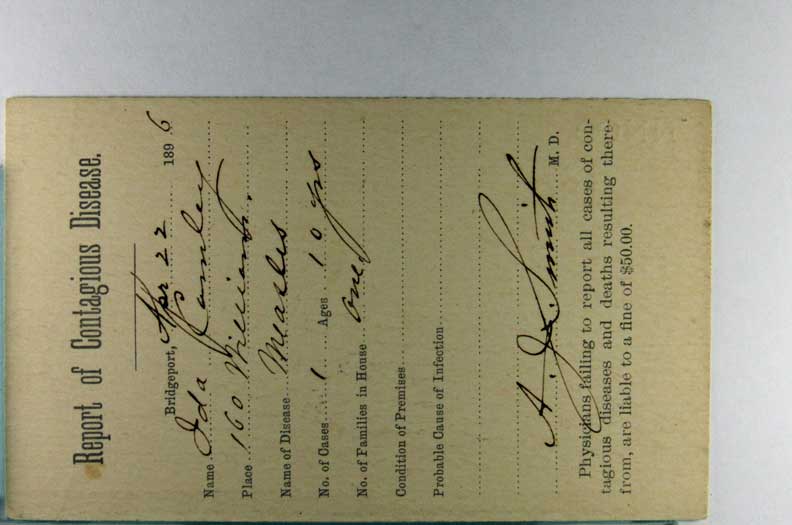 Report of Contagious Disease.
Bridgeport, Apr 22 1896
Name Ida
Place 160 William St.
Name of Disease Measles
No. of Cases 1 Ages 10 yrs
No. of Families in House one
Condition of Premises
Probable Cause of Infection
A. Smith M. D.
Physicians failing to report all cases of con-
tagious diseases and deaths resulting there-
from, are liable to a fine of $50.00.